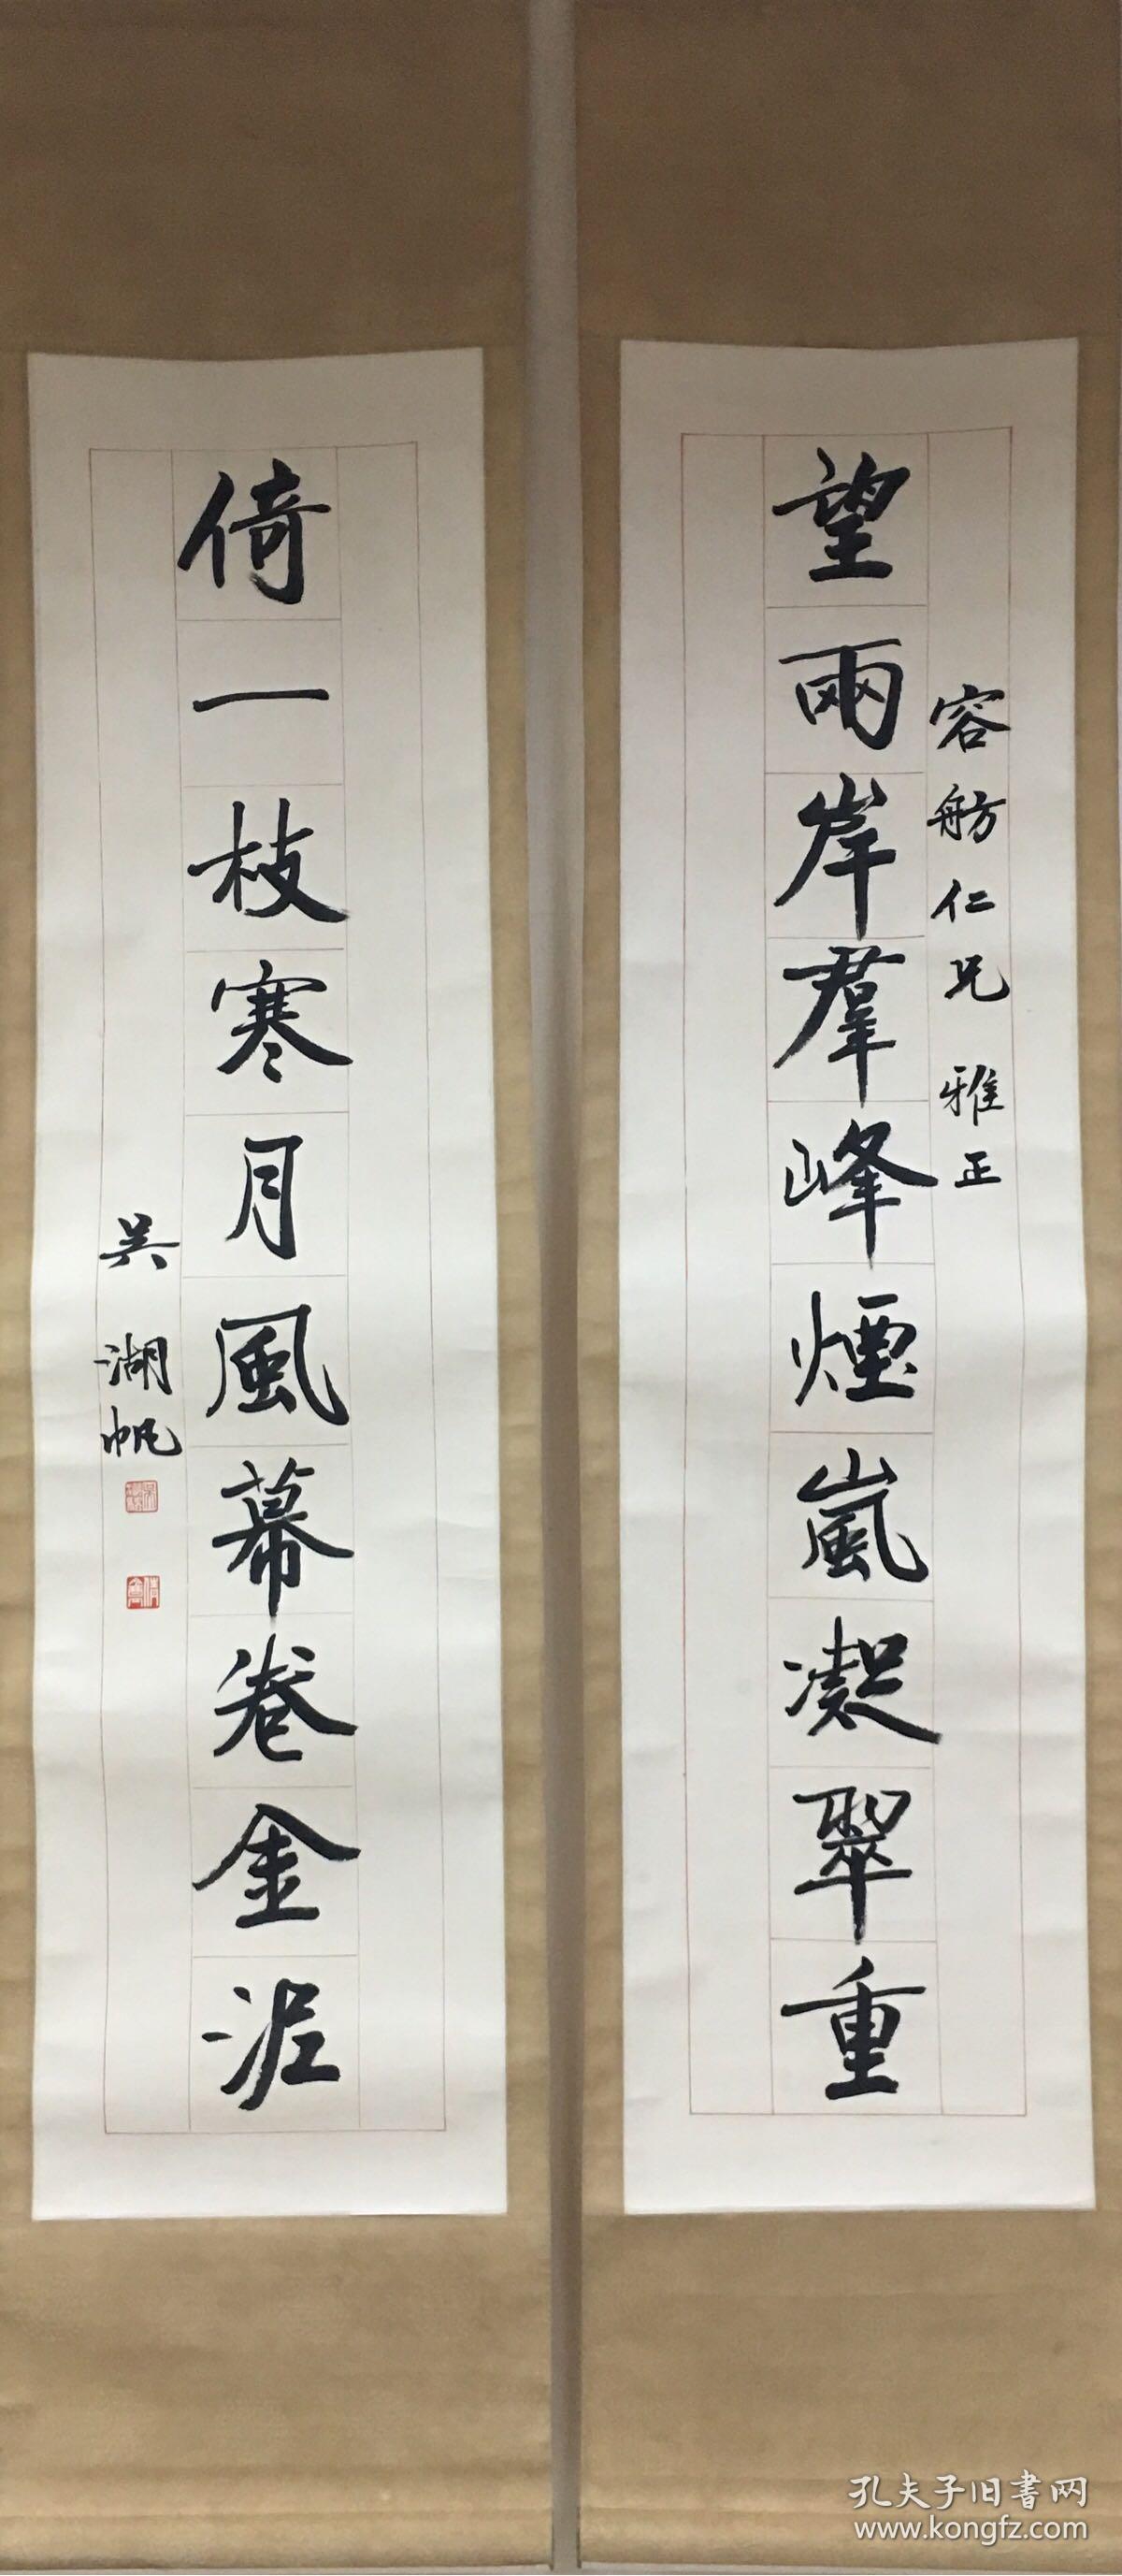 容舫仁兄 雅正
望兩岸羣峰煙嵐凝翠重
倚一枝寒月風幕卷金泥
吳湖帆
孔夫子旧書网
www.kongfz.com